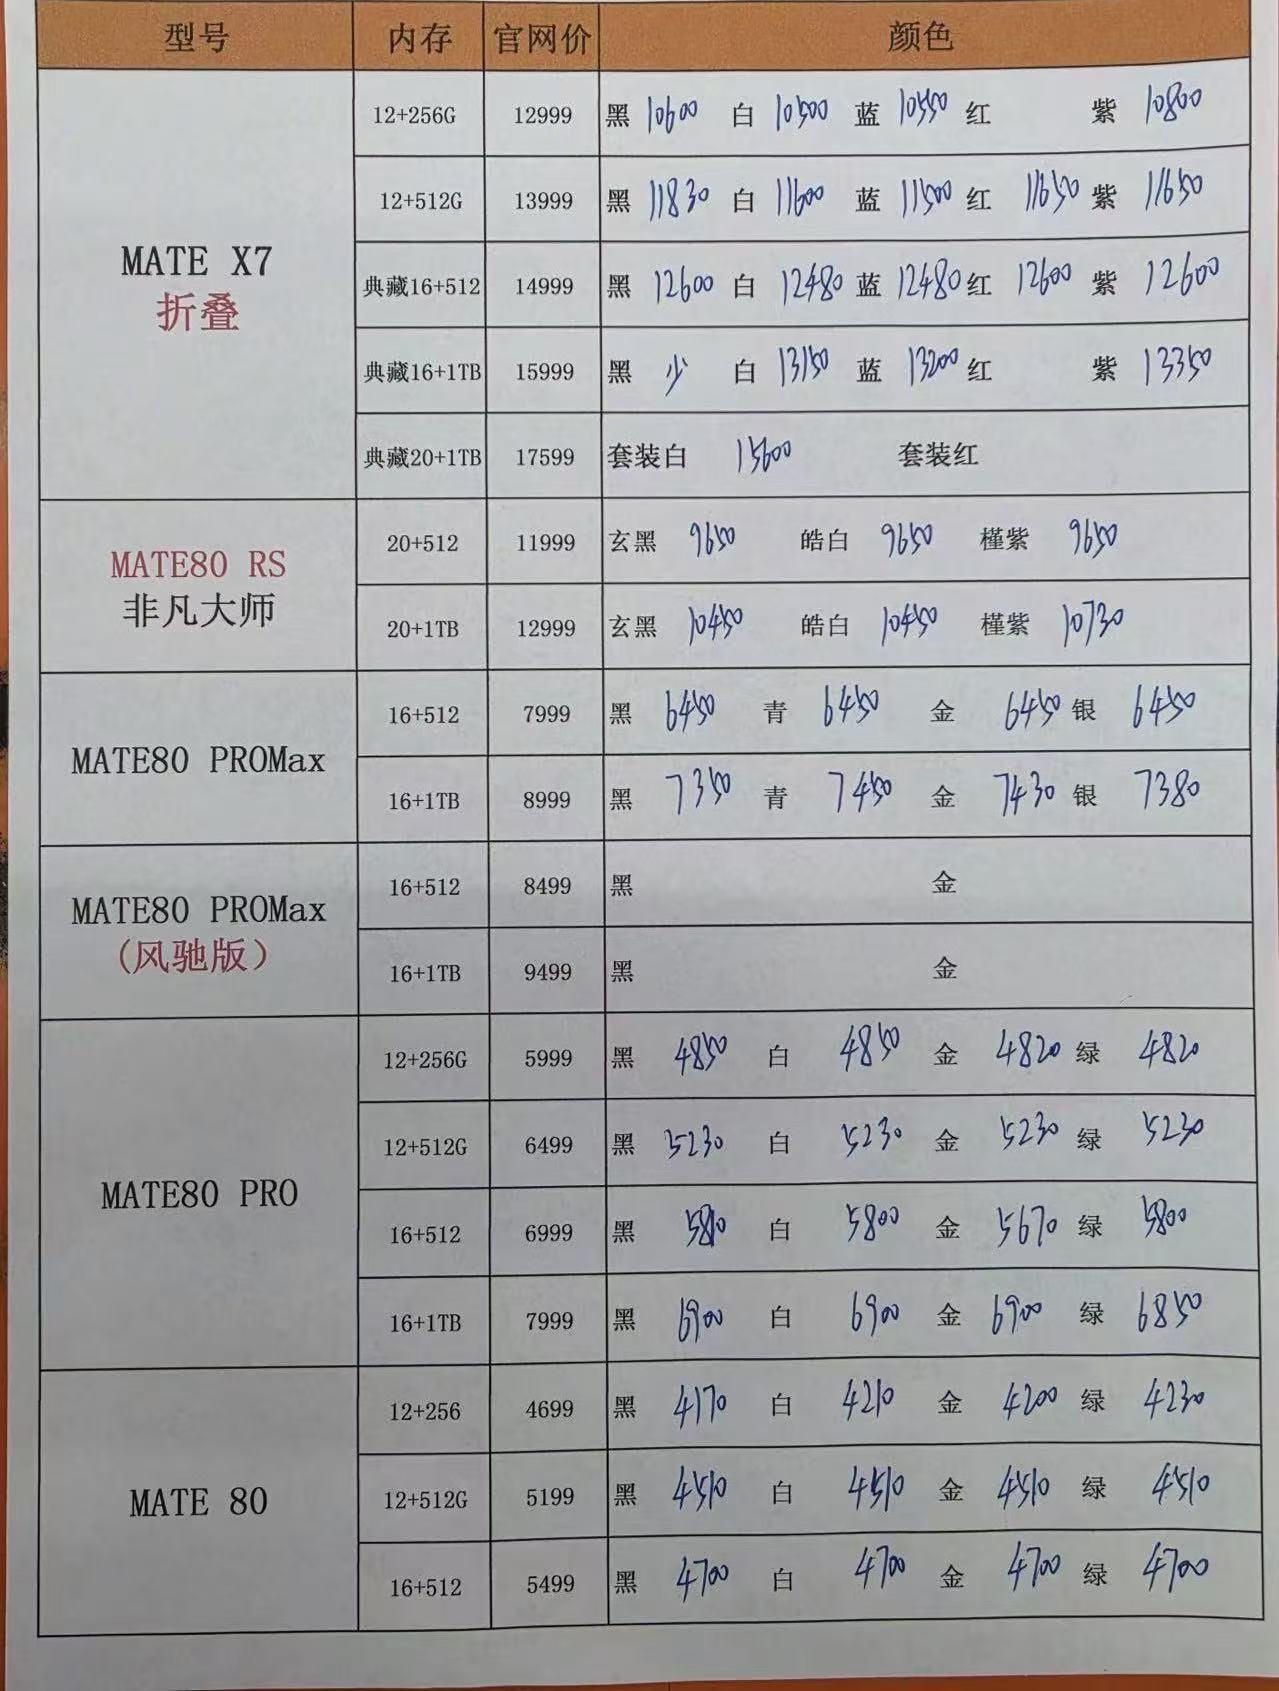 型号 内存 官网价 颜色
12+256G 12999 黑 10600 白 10500 蓝 10550 红 紫 10800
12+512G 13999 黑 11830 白 11600 蓝 11500 红 11650 紫 11650
MATE X7
折叠
典藏16+512 14999 黑 12600 白 12480 蓝 12480 红 12600 紫 12600
典藏16+1TB 15999 黑 少 白 13150 蓝 13200 红 紫 13350
典藏20+1TB 17599 套装白 15600 套装红
MATE80 RS
非凡大师
20+512 11999 玄黑 9650 皓白 9650 槿紫 9650
20+1TB 12999 玄黑 10450 皓白 10450 槿紫 10730
MATE80 PROMax
16+512 7999 黑 6450 青 6450 金 6450 银 6450
16+1TB 8999 黑 7350 青 7450 金 7430 银 7380
MATE80 PROMax
(风驰版)
16+512 8499 黑 金
16+1TB 9499 黑 金
MATE80 PRO
12+256G 5999 黑 4850 白 4850 金 4820 绿 4820
12+512G 6499 黑 5230 白 5230 金 5230 绿 5230
16+512 6999 黑 5810 白 5800 金 5670 绿 5800
16+1TB 7999 黑 6900 白 6900 金 6900 绿 6850
MATE 80
12+256 4699 黑 4170 白 4210 金 4200 绿 4230
12+512G 5199 黑 4510 白 4510 金 4510 绿 4510
16+512 5499 黑 4700 白 4700 金 4700 绿 4700